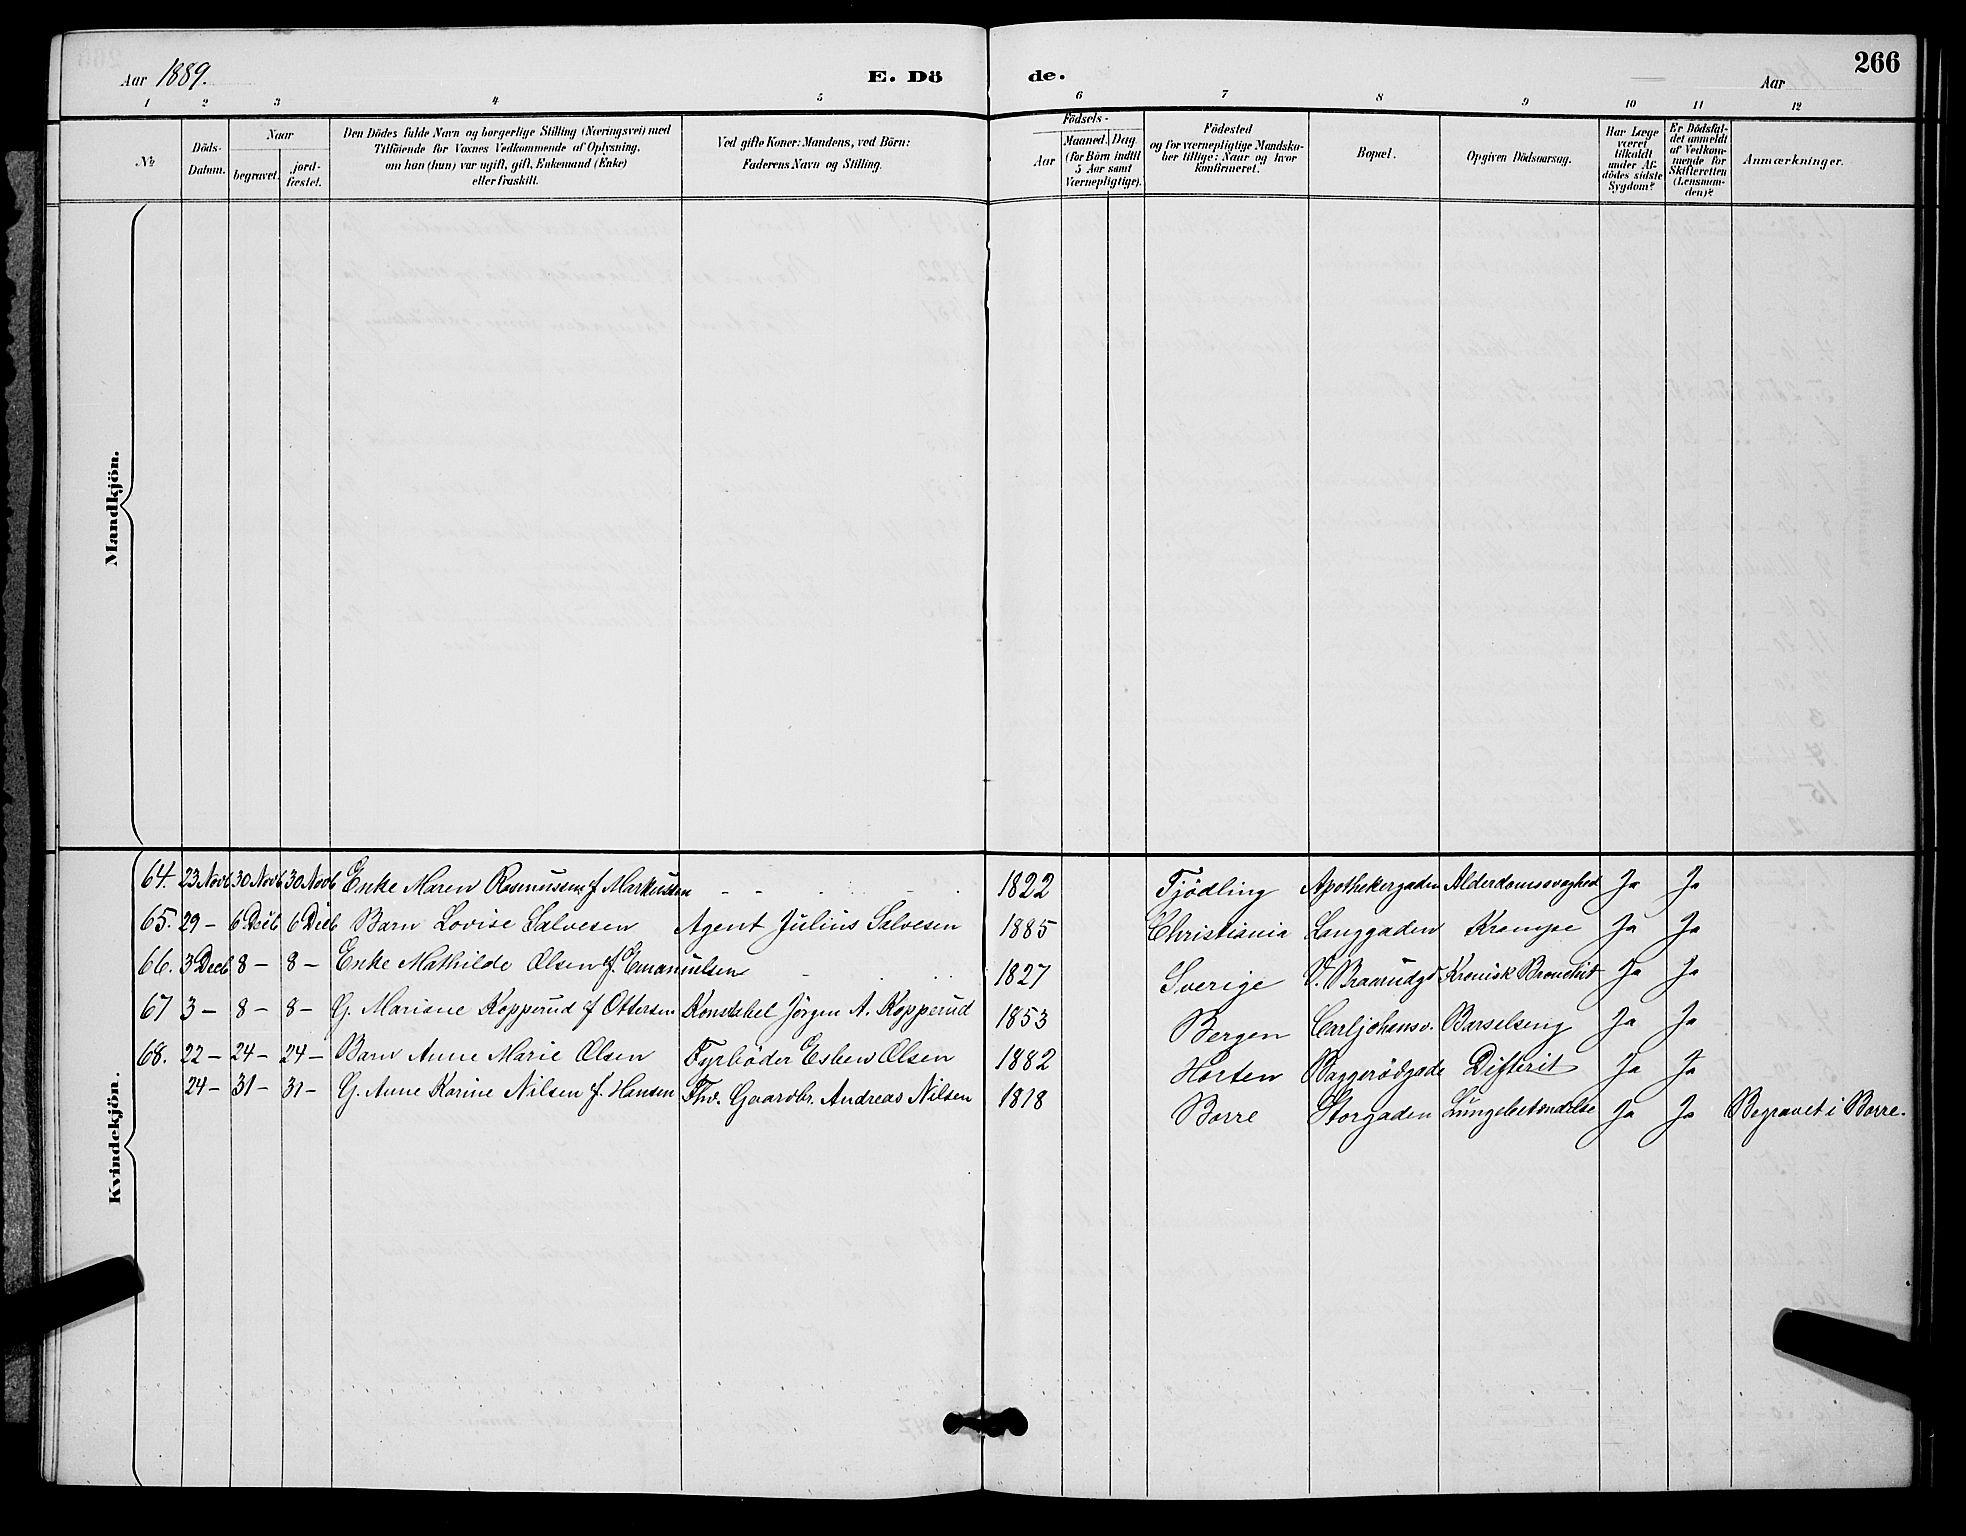 Aar 1889.
E. Dö
de.
Aar
266
1 2 3 4 5 6 7 8 9 10 11 12
No
Döds-
Datum.
Naar
begravet.
jord-
fæstet.
Den Dödes fulde Navn og borgerlige Stilling (Næringsvei) med
Tilföiende for Voxnes Vedkommende af Oplysning,
om han (hun) var ugift, gift, Enkemand (Enke)
eller fraskilt.
Ved gifte Koner: Mandens, ved Börn:
Faderens Navn og Stilling.
Födsels-
Aar
Maaned. Dag
(for Börn indtil
5 Aar samt
Værnepligtige).
Födested
og for værnepligtige Mandska-
ber tillige: Naar og hvor
konfirmeret.
Bopæl.
Opgiven Dödsaarsag.
Har Læge
været
tilkaldt
under Af-
dödes sidste
Sygdom?
Er Dödsfal-
det anmeldt
af Vedkom-
mende for
Skifteretten
(Lensman-
den)?
Anmærkninger.
Mandkjön.
Kvindekjön.
64. 23 Novb 30 Novb 30 Novb Enke Maren Rasmussen f Markussen - - - - 1822 Tjödling Apothekergaden Alderdomssvaghed Ja Ja
65. 29 - 6 Dcb 6 Dcb Barn Lovise Salvesen Agent Julius Salvesen 1885 Christiania Langgaden Krampe Ja Ja
66. 3 Decb 8 - 8 - Enke Mathilde Olsen f. Emanuelsen - - 1827 Sverige V. Braarudgd Kronisk Bronchit Ja Ja
67 3 - 8 - 8 - G. Mariane Kopperud f Ottersen Konstabel Jörgen A. Kopperud 1853 Bergen Carljohansv. Barselseng Ja Ja
68. 22 - 24 - 24 - Barn Anne Marie Olsen Fyrböder Esben Olsen 1882 Horten Baggerödgade Difterit Ja Ja
24 - 31 - 31 - G. Anne Karine Nilsen f. Hansen Fhv. Gaardbr. Andreas Nilsen 1818 Borre Storgaden Lungebetændelse Ja Ja Begravet i Borre.